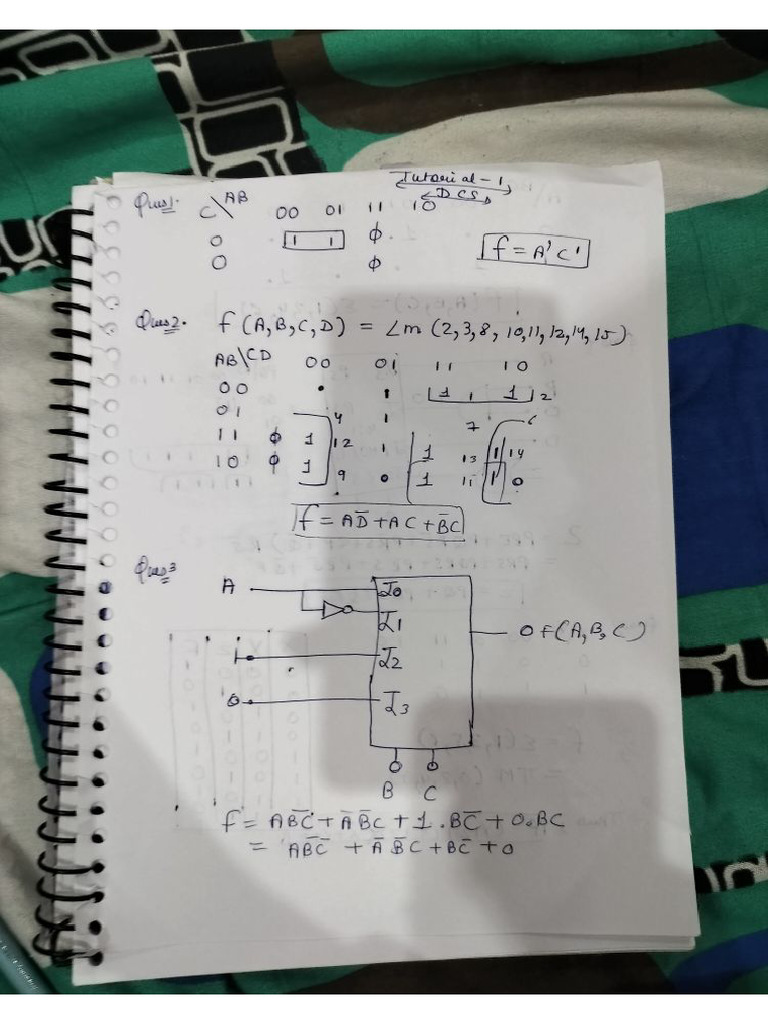 Tutorial-1
DCS
Ques1.
C\AB 00 01 11 10
0 1 1 ϕ
0 ϕ
f = A'C'
Ques2. f (A,B,C,D) = Σm (2,3,8, 10,11,12,14,15)
AB\CD 00 01 11 10
00 1 1 2
01 4 7 6
11 ϕ 1 12 1 13 1 14
10 ϕ 1 9 1 11 1 0
f = AD̅ + AC + B̅C
Ques3
A I0
I1
O f(A,B,C)
1 I2
0 I3
B C
f = AB̅C̅ + A̅B̅C + 1.BC̅ + 0.BC
= AB̅C̅ + A̅B̅C + BC̅ + 0